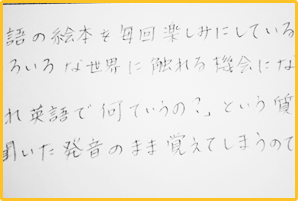 語の絵本を毎回楽しみにしている
ろいろな世界に触れる機会にな
れ英語で何ていうの?」という質
聞いた発音のまま覚えてしまうので